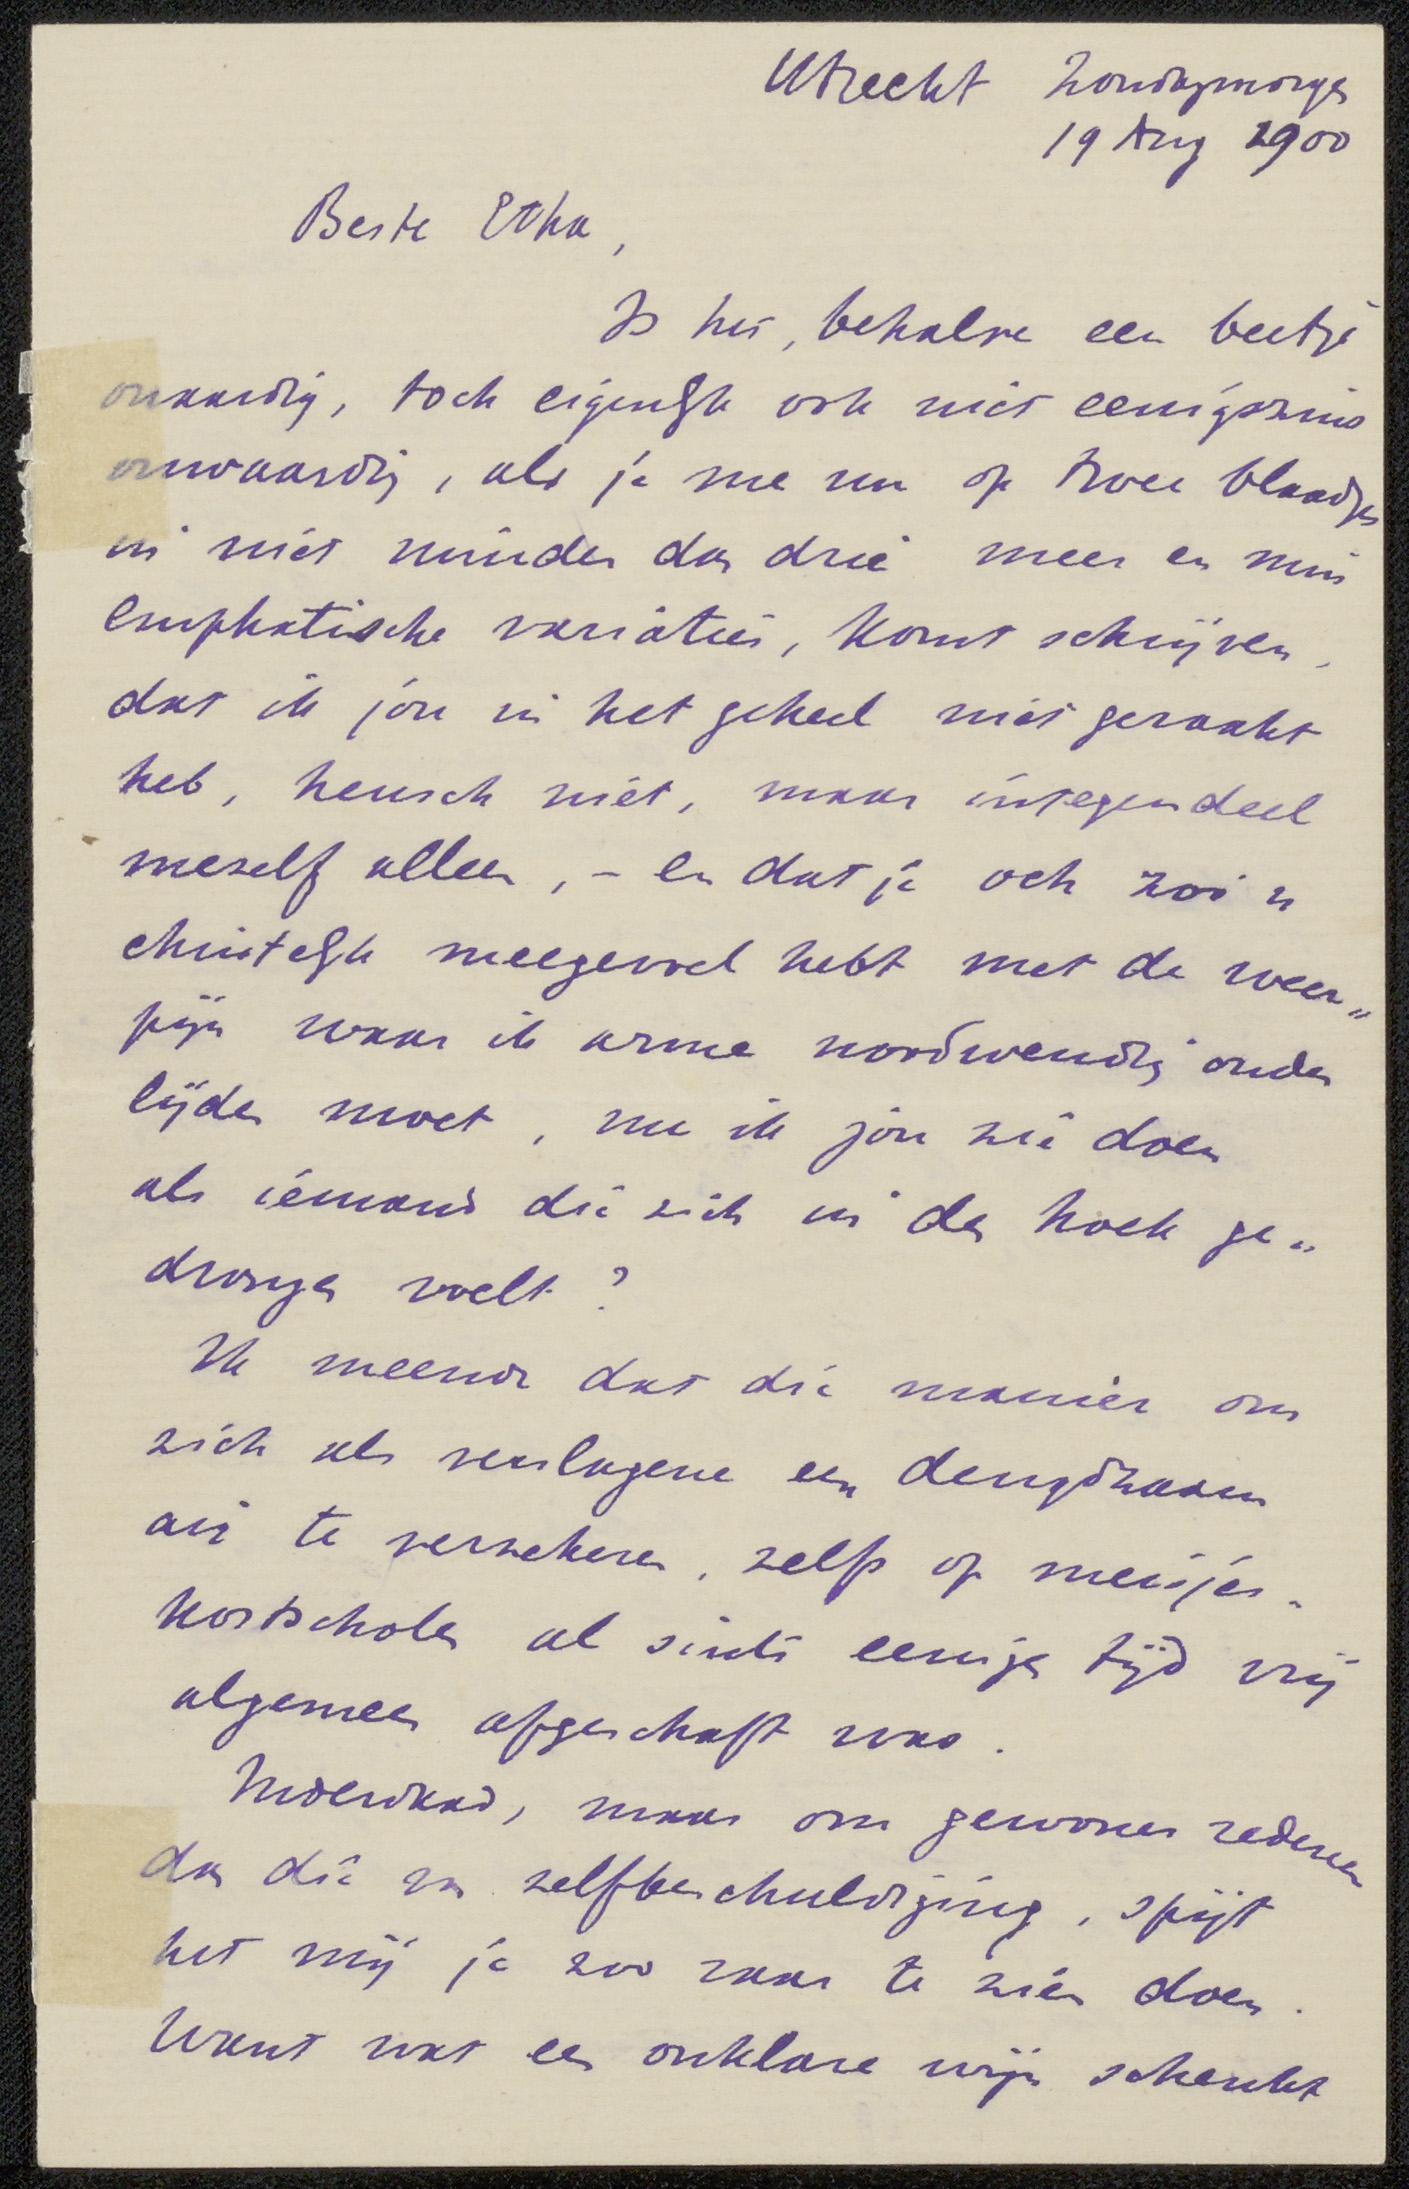 Utrecht Zondagmorgen
19 Aug 1900
Beste Etha,
Is het, behalve een beetje
onaardig, toch eigenlijk ook niet eenigszins
onwaardig, als je me nu op twee blaadjes
in niet minder dan drie meer en min
emphatische variaties, komt schrijven,
dat ik jou in het geheel niet geraakt
heb, heusch niet, maar integendeel
meself alleen, – en dat je och zoo'n
christelijk meegevoel hebt met de weer„
pijn waar ik arme noodwendig onder
lijden moet, nu ik jou zie doen
als iemand die zich in den hoek ge„
drongen voelt?
Ik meende dat die manier om
zich als verslagene een deugdzaam
air te verzekeren, zelfs op meisjes-
kostscholen al sinds eenigen tijd vrij
algemeen afgeschaft was.
Inderdaad, maar om gewoner redenen
dan die van zelfbeschuldiging, spijt
het mij je zoo raar te zien doen.
Want wat een onklare wijn schenkt